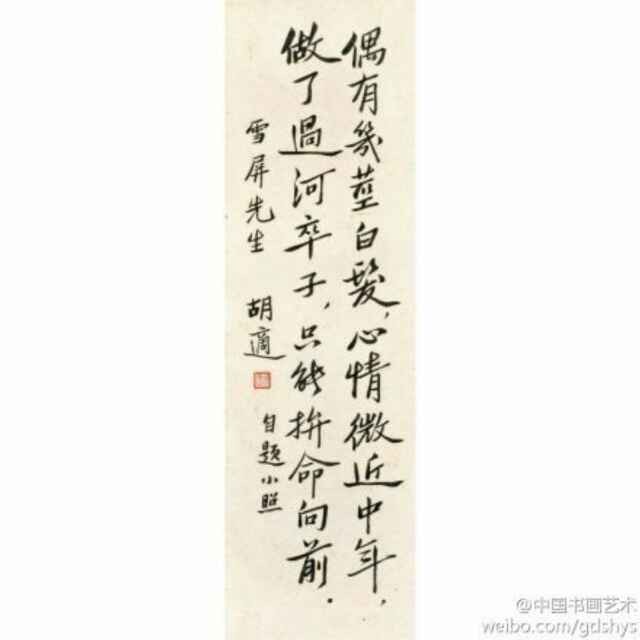 偶有幾莖白髮，心情微近中年，
做了過河卒子，只能拚命向前．
雪屏先生 胡適
自題小照
@中国书画艺术
weibo.com/gdshys